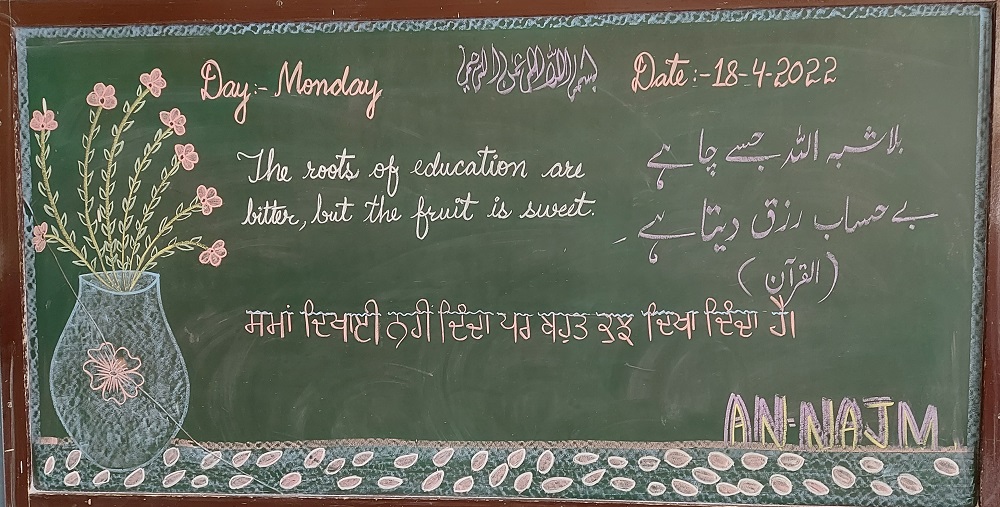 Day:- Monday
بسم اللہ الرحمن الرحیم
Date:-18-4-2022
The roots of education are
bitter, but the fruit is sweet.
بلاشبہ اللہ جسے چاہے
بے حساب رزق دیتا ہے
(القرآن)
ਸਮਾਂ ਦਿਖਾਈ ਨਹੀਂ ਦਿੰਦਾ ਪਰ ਬਹੁਤ ਕੁਝ ਦਿਖਾ ਦਿੰਦਾ ਹੈ।
AN-NAJM